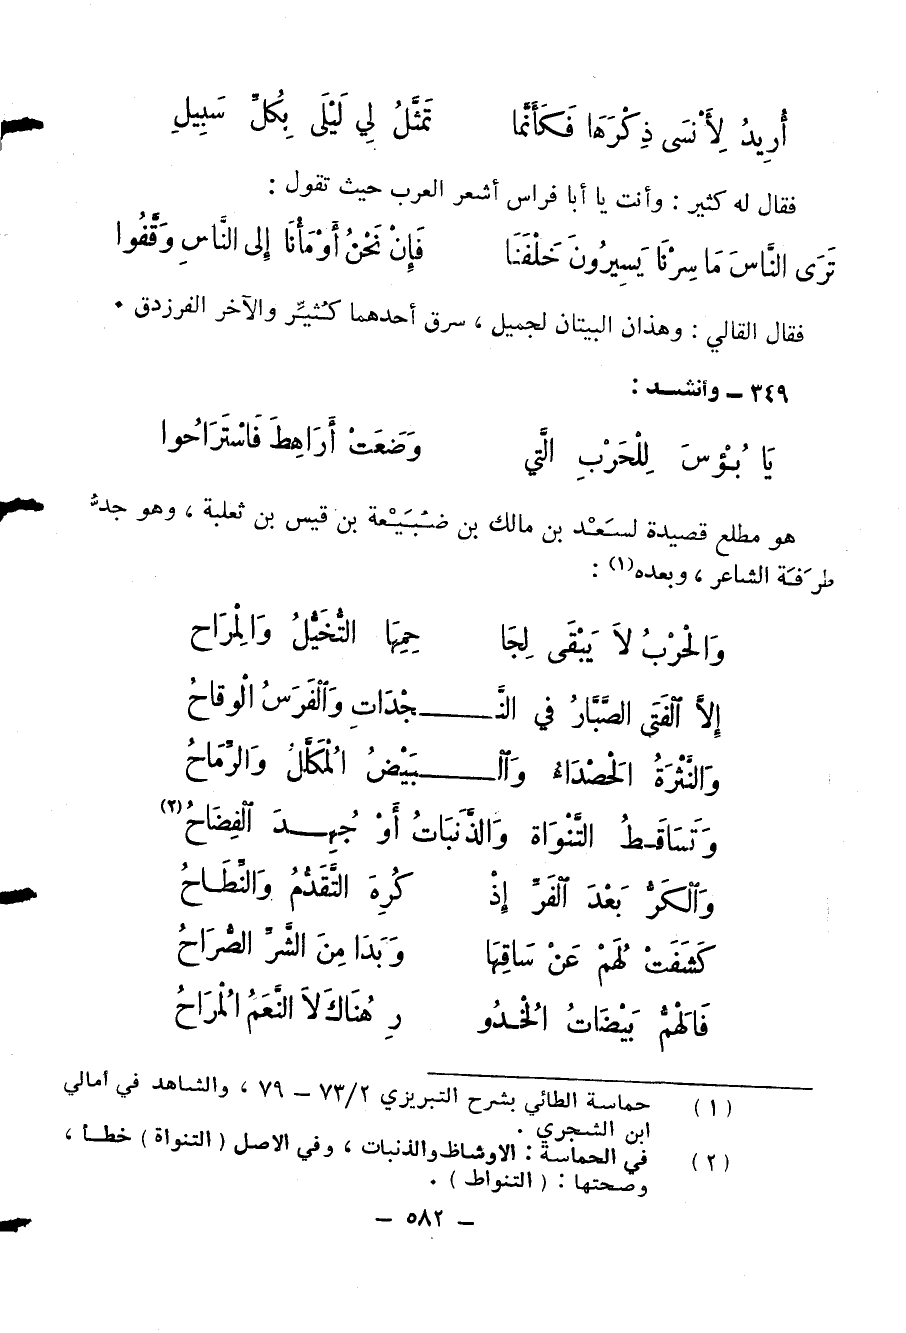 أُرِيدُ لِأَنْسَى ذِكْرَهَا فَكَأَنَّمَا تَمَثَّلُ لِي لَيْلَى بِكُلِّ سَبِيلِ
فقال له كثير : وأنت يا أبا فراس أشعر العرب حيث تقول :
تَرَى النَّاسَ مَا سِرْنَا يَسِيرُونَ خَلْفَنَا فَإِنْ نَحْنُ أَوْمَأْنَا إِلى النَّاسِ وَقَّفُوا
فقال القالي : وهذان البيتان لجميل ، سرق أحدهما كُثيِّر والآخر الفرزدق .
٣٤٩ ــ وأنشــد :
يَا بُؤْسَ لِلْحَرْبِ الَّتِي وَضَعَتْ أَرَاهِطَ فَاسْتَرَاحُوا
هو مطلع قصيدة لسَعَنْد بن مالك بن ضُبَيْعة بن قيس بن ثعلبة ، وهو جدُّ
طرَفَة الشاعر ، وبعده(١) :
وَالْحَرْبُ لاَ يَبْقَى لِجَا حِمِهَا التَّخَيُّلُ وَالْمِرَاح
إِلاَّ الْفَتَى الصَّبَّارُ في النَّـــجْدَاتِ وَالْفَرَسُ الْوقَاحُ
وَالنَّثْرَةُ الْحَصْدَاءُ وَالْـــبَيْضُ الْمُكَلَّلُ وَالرِّمَاحُ
وَتَسَاقَـطُ التَّنْوَاة وَالذَّنَبَاتُ أَوْ جُهِـدَ الْفِضَاحُ(٢)
وَالْكَرُّ بَعْدَ الْفَرِّ إِذْ كُرِهَ التَّقَدُّمُ وَالنِّطَـاحُ
كَشَفَتْ لَهُمْ عَنْ سَاقِهَا وَبَدَا مِنَ الشَّرِّ الصُّرَاحُ
فَالهَمُّ بَيْضَاتُ الْخُـدُو رِ هُنَاكَ لاَ النَّعَمُ الْمُرَاحُ
(١) حماسة الطائي بشرح التبريزي ٧٣/٢ ــ ٧٩ ، والشاهد في أمالي
ابن الشجري .
(٢) في الحماسة : الاوشاظ والذنبات ، وفي الاصل ( التنواة ) خطـأ ،
وصحتها : ( التنواط ) .
ــ ٥٨٢ ــ